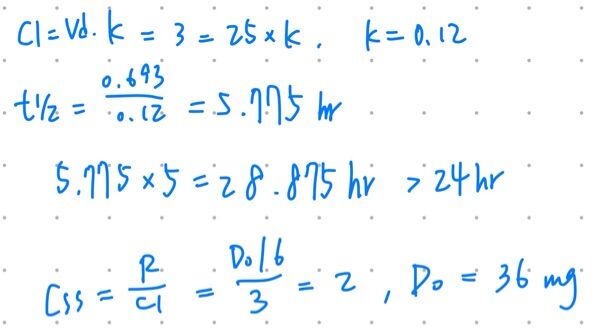 Cl = Vd. k = 3 = 25 × k . k = 0.12
t1/2 = 0.693/0.12 = 5.775 hr
5.775 × 5 = 28.875 hr > 24 hr
Css = R/Cl = Do/6/3 = 2 , Do = 36 mg